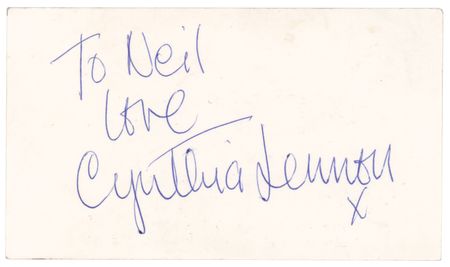 To Neil
love
Cynthia Lennon
x